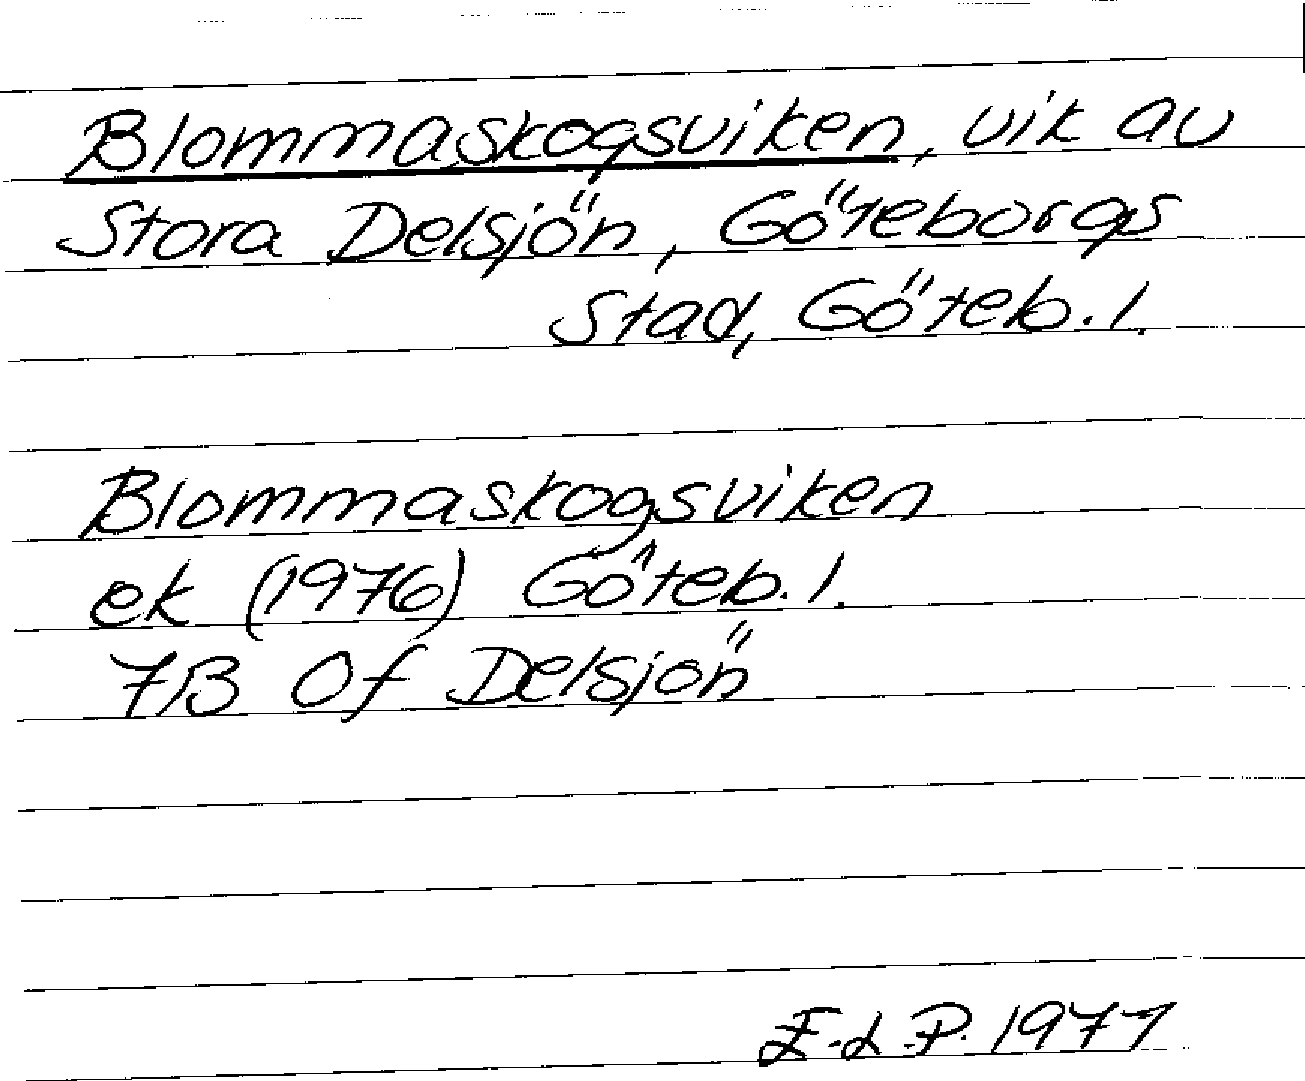 Blommaskogsviken, vik av
Stora Delsjön, Göteborgs
Stad, Göteb. l.
Blommaskogsviken
ek (1976) Göteb. l.
7B 0f Delsjön
E.L.P. 1977